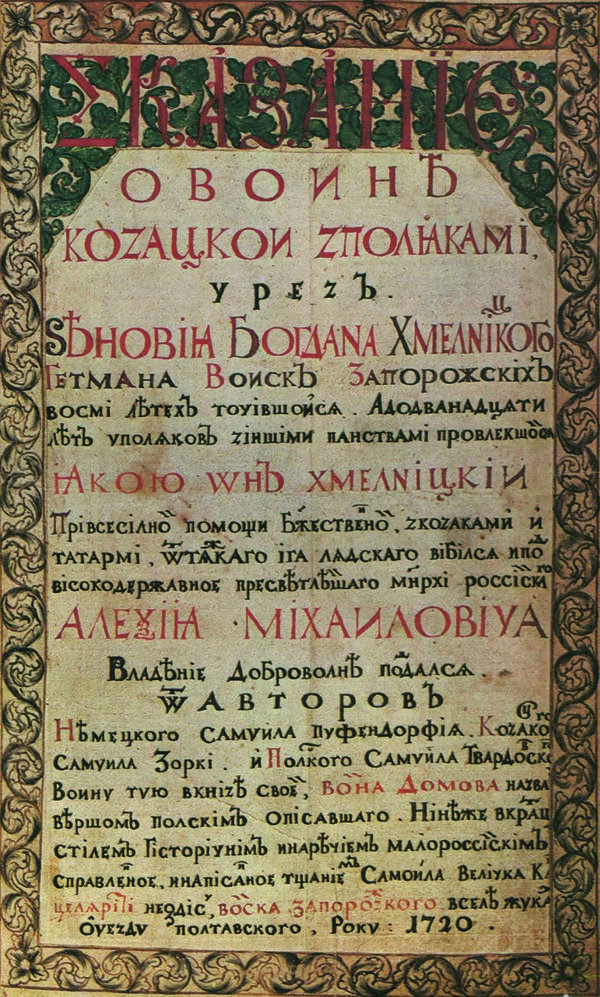 СКАЗАНІЕ
О ВОИНѢ
КОZАЦКОИ ZПОЛѦКАМІ,
УРЕZЪ.
ЅѢНОВІѦ БОГДАНА ХМЕЛНІЦКОГО
ГЕТМАНА ВОИСКЪ ЗАПОРОЖСКІХЪ
ВОСМІ ЛѢТЕХЪ ТОЧІВШОЙСѦ. АДОДВАНАДЦѦТИ
ЛѢТЪ УПОЛѦКОВЪ ZІНШІМИ ПАНСТВАМІ ПРОВЛЕКШОЙСѦ
ІѦКОЮ ѠНЪ ХМЕЛНІЦКІИ
Прі всесілноⷨ помощи Бж҃ественноⷨ, zкоzаками й
татармі, ѿтѧжкаго іга лѧдскаго вібілсѧ ипоⷣ
вісокодержавное пресвѣтлѣйшаго мнⷬрхі россійскаго
АЛЕѮІѦ МІХАИЛОВІЧА
Владѣніе Доброволнѣ поддалсѧ.
ѾАВТОРОВЪ
Нѣмецкого Самуила Пуфендорфіѧ. Коzацкого
Самуила Зоркі. й Полского Самуила Твардовского
Воину тую вкнізѣ своей, Война Домова назва
вѣршомъ полскімъ описавшаго. Нінѣже вкрац
стілемъ Гісторічнімъ инарѣчіемъ малороссійскімъ
справленое, инапісаное тщаніемъ Самоила Велічка Кан
целѧристі негдісь, войска запорожского вселѣ жука
Оуезду полтавского, Року: 1720.